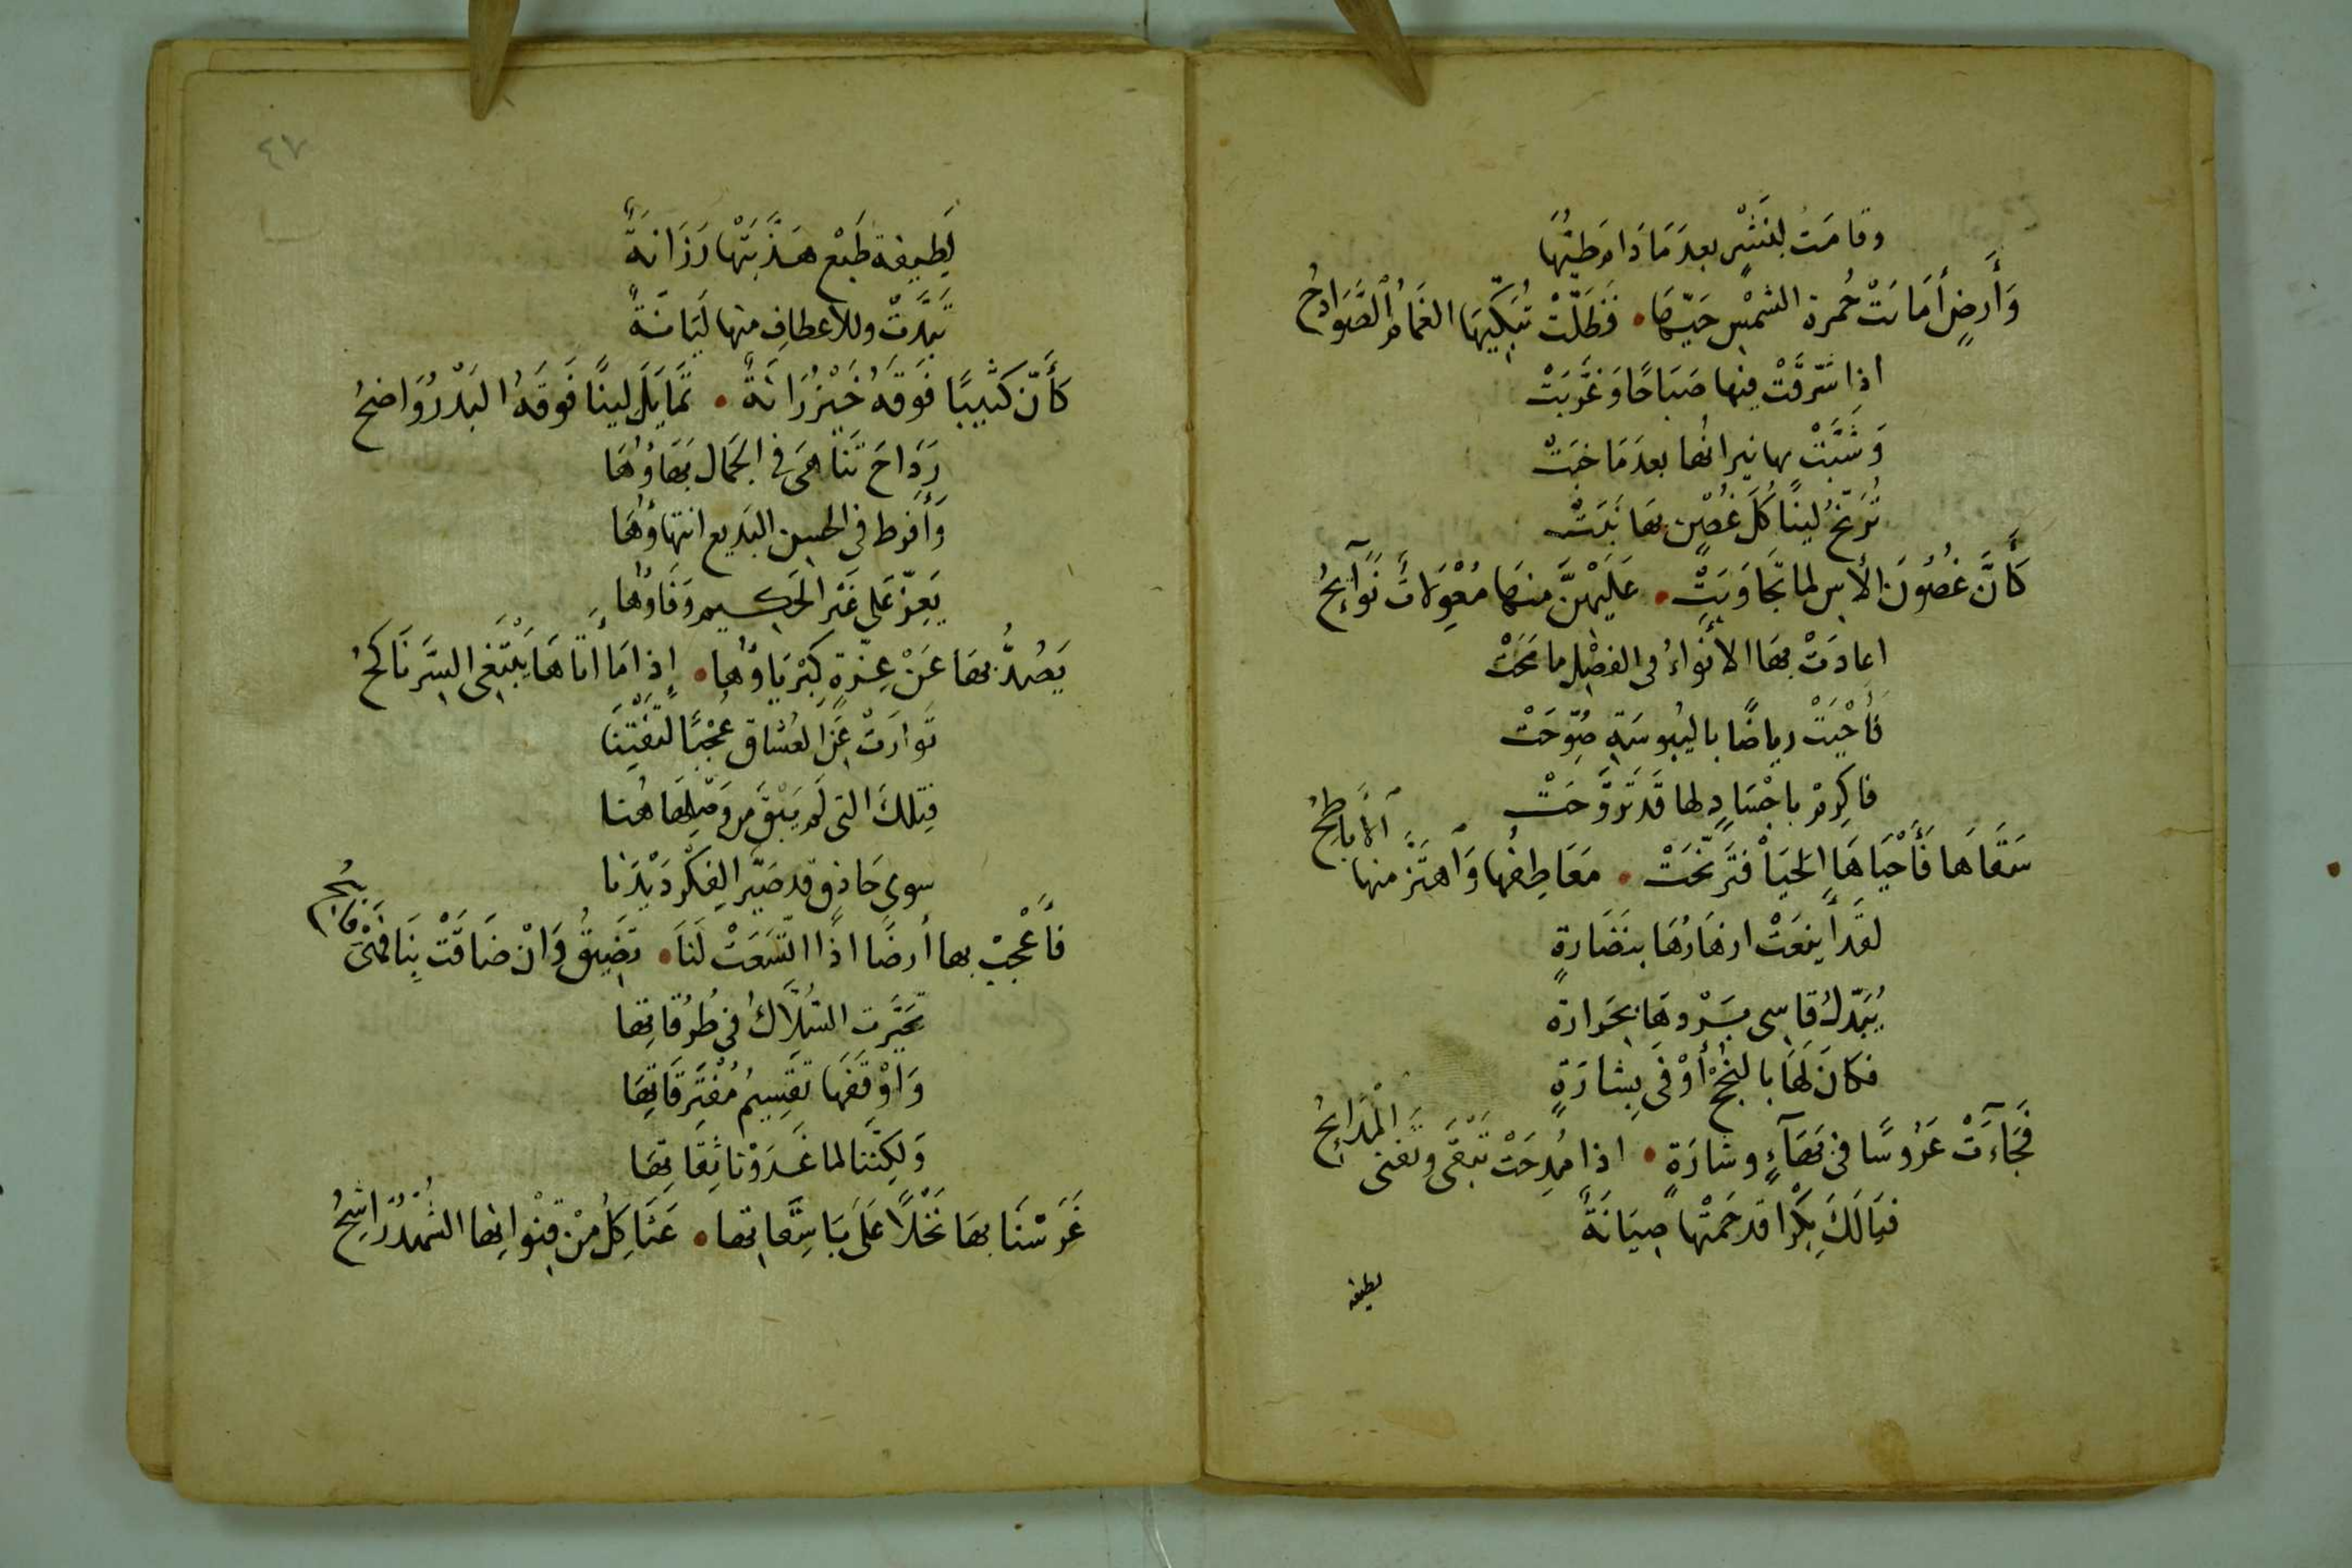 وقامَتْ لِنَشْرٍ بعدَمَا دَامَ طَيُّهَا
وَأَرضٍ أَمَاتَتْ حُمرة الشمْسِ حَيَّهَا • فَظَلَّتْ تُبَكِّيهَا الغَمَامُ الصَّوَادِحُ
اذا شَرَّقَتْ فيها صَبَاحًا وَغَرَّبَتْ
وَشَبَّتْ بها نيرانُها بعدَمَا خبَتْ
تُرَنِّحُ لينًا كُلَّ غُصْنٍ بهَا نَبَتْ
كَأَنَّ غصُونَ الأسِ لما تَجَاوَبَتْ • عَلَيْهِنَّ منهَا مُعْوِلاتٌ نَوَآئِحُ
اعادَتْ بهَا الأنْوَاءُ في الفصْلِ ما مَحَتْ
فأَحْيَتْ رياضًا باليُبُوسَةِ صَوَّحَتْ
فاكرِمْ باجْسَادٍ لها قَد تَرَوَّحَتْ
سَقَاهَا فَأَحْيَاهَا الحَيَا فتَرَنَّحَتْ • مَعَاطِفُها وَاهتَزَّ منها الأباطِحُ
لقَد أَينَعَتْ ازهَارُهَا بنَضَارةٍ
يُبَدّلُ قاسِى بَرْدِهَا بحَرارة
فكانَ لهَا بالنُجْحِ أَوْفَى بِشارَةٍ
فَجَآءَتْ عَرُوسًا في بَهَآءٍ وشارَةٍ • اذا مُدِحَتْ تَبْقَى وتَفنى الْمدَائِحُ
فيَالَكَ بِكْرًا قد حَمَتْها صِيَانَةٌ
لطيفة
٤٧
لَطِيفة طَبْعٍ هَذَّبَتْها رَزَانَةٌ
تَبَدَّتْ وللأعطافِ منها لَيَانَةٌ
كَأَنَّ كَثِيبًا فَوقَهُ خَيْزُرَانَةٌ • تَمَايَلَ لينًا فَوقَهُ البَدْرُ وَاضحُ
رَدَاحَ تَنَاهَى في الجَمال بَهَاؤُهَا
وَأَفرط في الحسن البَديع انتهاؤُهَا
يَعِزّ عَلى غَيْر الحَكِيم وَفَاؤُها
يَصُدُّ بهَا عَنْ عِزّةٍ كِبْرِيَاؤُها • إذا مَا أَتَاهَا يَبْتَغِي السِّرَّ نَاكحُ
تَوارَتْ عَنِ العُشاق عُجْبًا لتَفْتِنَا
فتِلكَ التى لَم يَبْقَ مِن وَصْلِهَا هُنا
سوى حَاذقٍ قد صَيَّر الفِكْرَ دَيْدَنا
فأَعْجِبْ بها أَرضًا اذَا اتّسَعَتْ لَنَا • تَضِيقُ وَانْ ضَاقَتْ بِنَا فَهْىَ فاسِحُ
تَحَيَّرت السُّلاَّكُ في طُرُقاتِها
وَاوْقَفَها تَقسِيمُ مُفْتَرِقَاتِهَا
وَلكِنَّنا لما غَدَوْنا ثِقَاتِهَا
غَرَسْنَا بهَا نَخْلاً عَلَى بَاسِقَاتِها • عَثَاكِلُ مِنْ قِنْوانِها الشُّهْدُ رَاشِحُ